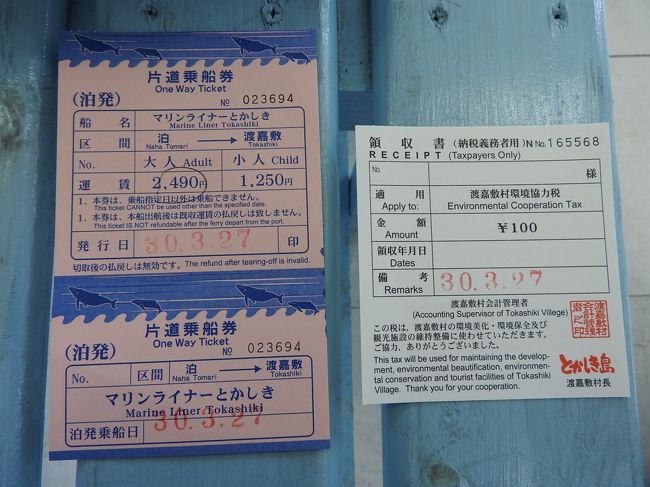 片道乗船券
One Way Ticket
(泊発) № 023694
船名 マリンライナーとかしき
Marine Liner Tokashiki
区間 泊 Naha Tomari → 渡嘉敷 Tokashiki
No. 大人 Adult 小人 Child
運賃 2,490円 1,250円
1.本券は、乗船指定日以外は乗船できません。
This ticket CANNOT be used other than the specified date.
1.本券は、本船出航後は既収運賃の払戻しは致しません。
This ticket IS NOT refundable after the ferry depart from the port.
発行日 30.3.27 印
切取後の払戻しは無効です。 The refund after tearing-off is invalid.
片道乗船券
One Way Ticket
(泊発) № 023694
No. 区間 泊 Naha Tomari → 渡嘉敷 Tokashiki
マリンライナーとかしき
Marine Liner Tokashiki
泊発乗船日 30.3.27
領収書 (納税義務者用) N No.165568
RECEIPT (Taxpayers Only)
No. 様
適用 渡嘉敷村環境協力税
Apply to: Environmental Cooperation Tax
金額 ¥100
Amount
領収年月日
Dates
備考 30.3.27
Remarks
渡嘉敷村会計管理者
(Accounting Supervisor of Tokashiki Village)
この税は、渡嘉敷村の環境美化・環境保全及び
観光施設の維持整備に使わせていただきます。
ご協力、ありがとうございました。
This tax will be used for maintaining the develop-
ment, environmental beautification, environmen-
tal conservation and tourist facilities of Tokashiki
Village. Thank you for your cooperation.
とかしき島
渡嘉敷村長